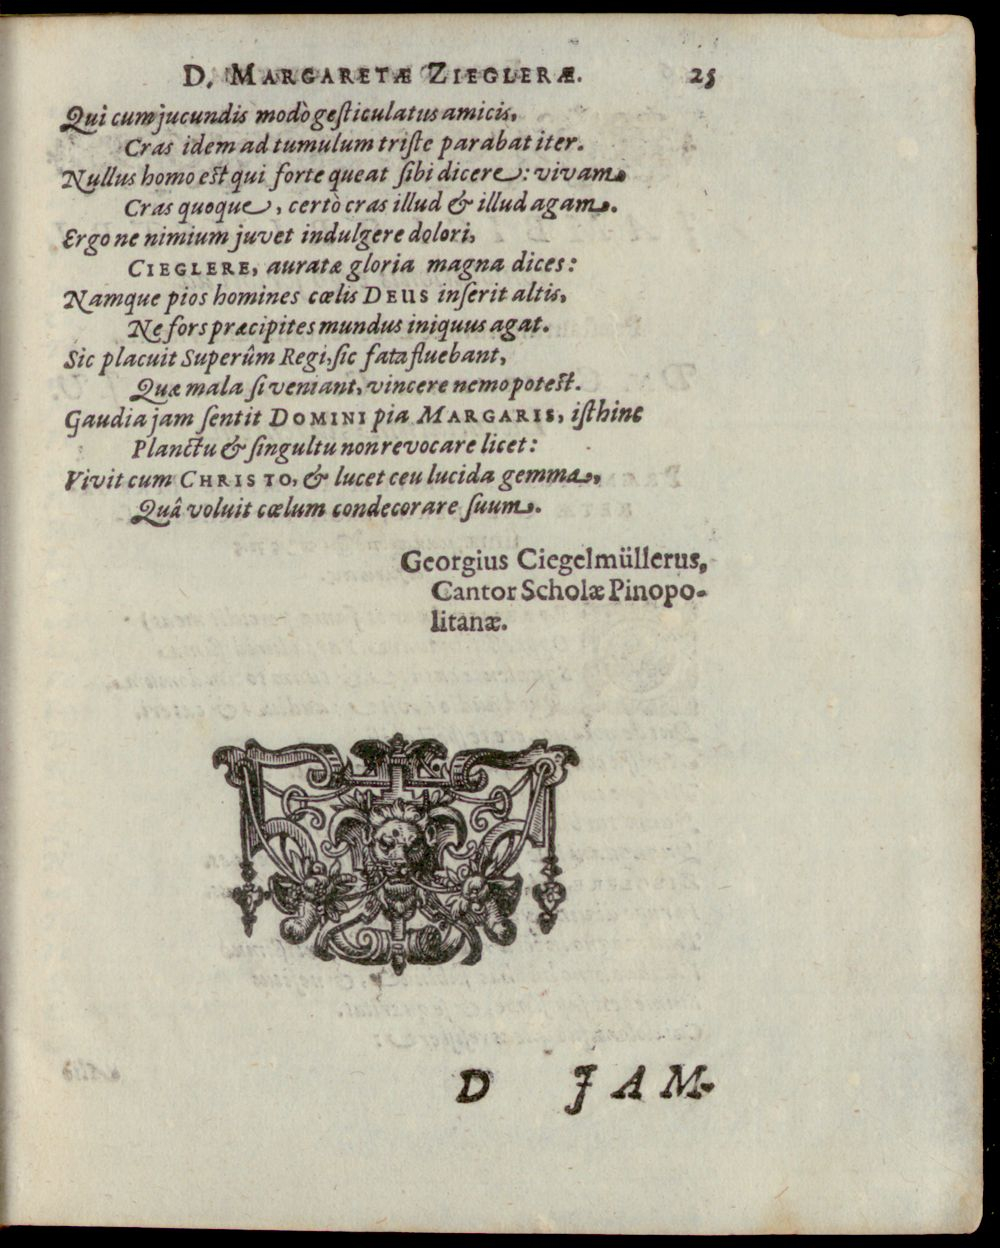 D. MARGARETÆ ZIEGLERÆ. 25
Qui cum jucundis modò gesticulatus amicis,
Cras idem ad tumulum triste parabat iter.
Nullus homo est qui forte queat sibi dicere: vivam
Cras quoque, certò cras illud & illud agam.
Ergo ne nimium juvet indulgere dolori,
CIEGLERE, auratæ gloria magna dices:
Namque pios homines cœlis DEUS inserit altis,
Ne fors præcipites mundus iniquus agat.
Sic placuit Superûm Regi, sic fata fluebant,
Quæ mala si veniant, vincere nemo potest.
Gaudia jam sentit DOMINI pia MARGARIS, isthinc
Planctu & singultu non revocare licet:
Vivit cum CHRISTO, & lucet ceu lucida gemma,
Quâ voluit cœlum condecorare suum.
Georgius Ciegelmüllerus,
Cantor Scholæ Pinopo-
litanæ.
D JAM-